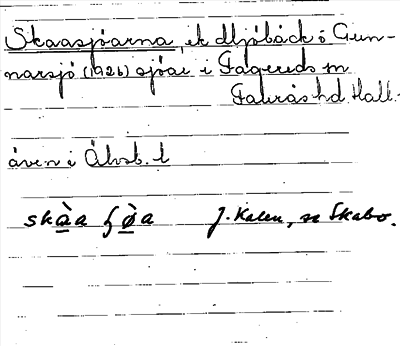 Skaasjöarna, ek Mjöbäck o Gun-
narsjö (1926) sjöar i Fagereds sn
Faurås hd. Hall.
även i Älvsb. l
skàa ʃø̀a J. Kalén, se Skabo.